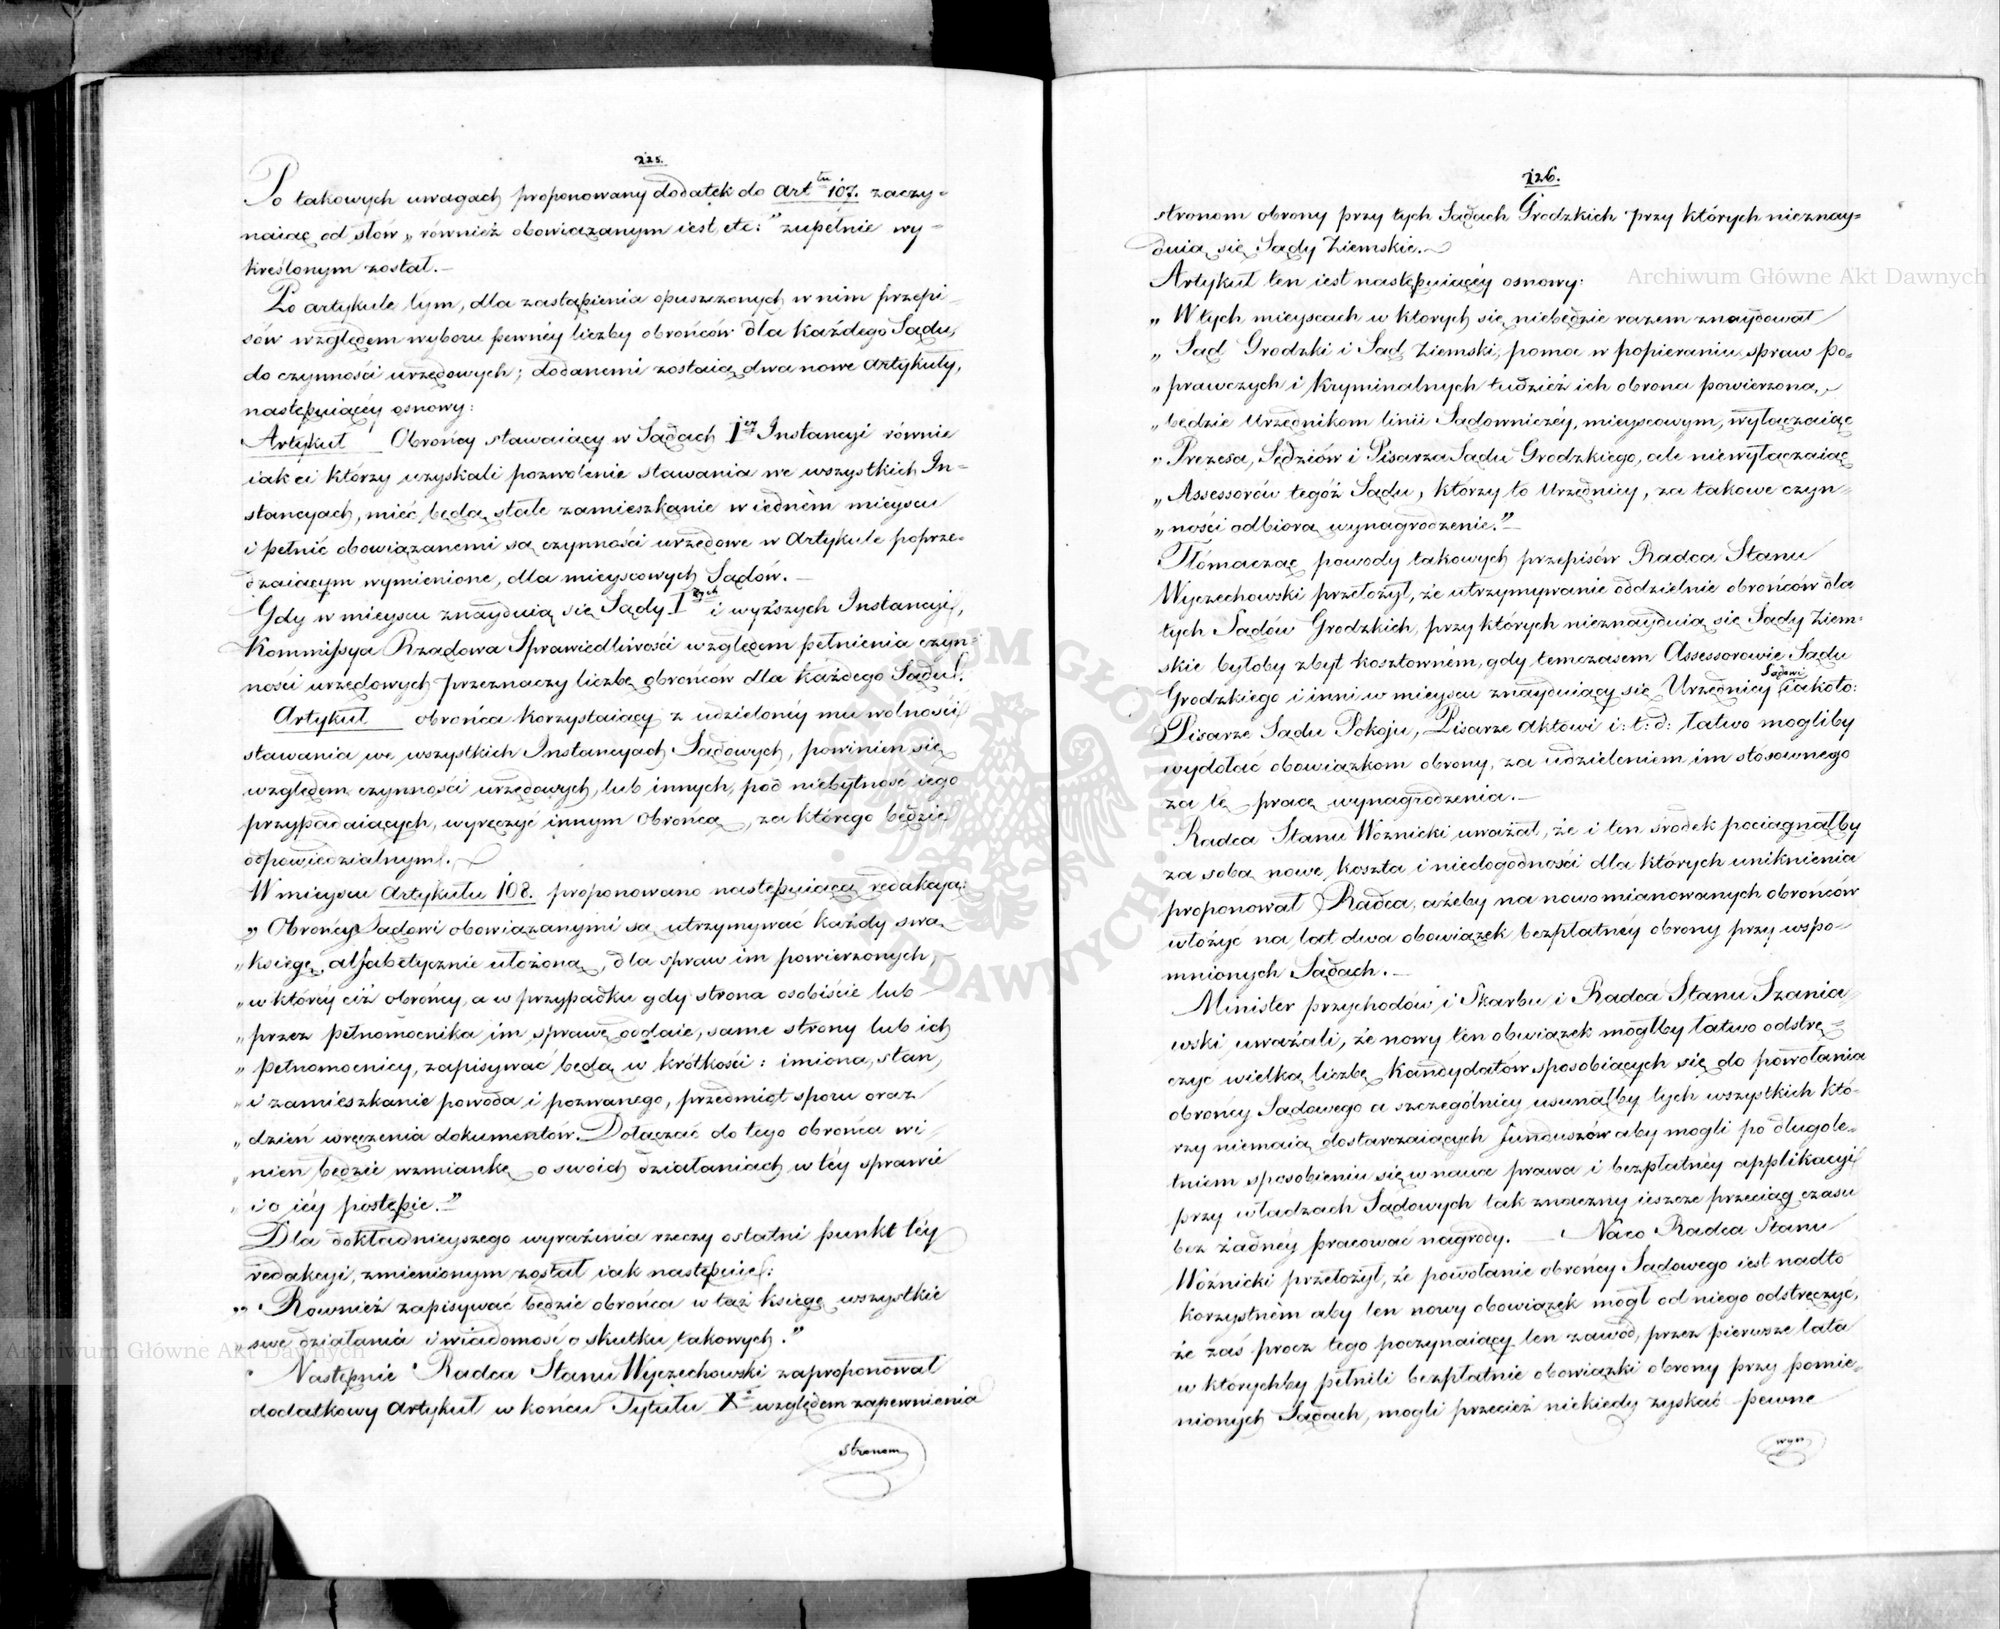 225.
Po takowych uwagach proponowany dodatek do art tu 107. zaczy-
naiąc od słów „również obowiązanym iest, etc:” zupełnie wy-
kreślonym został.—
Po artykule tym, dla zastąpienia opuszczonych w nim przepi-
sów względem wyboru pewnéy liczby obrońców dla każdego Sądu,
do czynności urzędowych; dodanemi zostaią dwa nowe artykuły,
następuiącéy osnowy:
Artykuł Obrońcy stawaiący w Sądach I éy Instancyi równie
iak ci którzy uzyskali pozwolenie stawania we wszystkich In-
stancyach, mieć będą stałe zamieszkanie w iedném mieyscu
i pełnić obowiązanemi są czynności urzędowe w Artykule poprze-
dzaiącym wymienione, dla mieyscowych Sądów.—
Gdy w mieyscu znayduią się Sądy I szych i wyższych Instancyi,
Kommissya Rządowa Sprawiedliwości względem pełnienia czyn-
ności urzędowych przeznaczy liczbę obrońców dla każdego Sądu.
Artykuł obrońca korzystaiący z udzielonéy mu wolności
stawania we wszystkich Instancyach Sądowych, powinien się
względem czynności urzędowych, lub innych, pod niebytność iego
przypadaiących, wyręczyć innym Obrońcą, za którego będzie
odpowiedzialnym.
W mieyscu Artykułu 108. proponowano następuiącą redakcyą:
„Obrońcy Sądowi obowiązanymi są utrzymywać każdy swą
„księgę alfabetycznie ułożoną, dla spraw im powierzonych,
„w któréy ciż obrońcy, a w przypadku gdy strona osobiście lub
„przez pełnomocnika im sprawę oddaie, same strony lub ich
„pełnomocnicy, zapisywać będą w krótkości: imiona, stan,
„i zamieszkanie powoda i pozwanego, przedmiot sporu oraz
„dzień wręczenia dokumentów. Dołączać do tego obrońca wi-
„nien będzie wzmiankę o swoich działaniach w téy sprawie
„i o iéy postępie.”
Dla dokładnieyszego wyrażenia rzeczy ostatni punkt téy
redakcyi, zmienionym został iak następuie:
„Również zapisywać będzie obrońca w taż księgę wszystkie
„swe działania i wiadomość o skutku takowych.”
Następnie Radca Stanu Wyczechowski zaproponował
dodatkowy Artykuł w końcu Tytułu X go względem zapewnienia
stronom
Archiwum Główne Akt Dawnych
226.
stronom obrony przy tych Sądach Grodzkich przy których nieznay-
duią się Sądy Ziemskie.
Artykuł ten iest następuiącéy osnowy:
„W tych mieyscach w których się niebędzie razem znaydował
„Sąd Grodzki i Sąd Ziemski, pomoc w popieraniu spraw po-
„prawczych i kryminalnych tudzież ich obrona powierzona
„będzie Urzędnikom linii Sądowniczéy, mieyscowym, wyłączaiąc
„Prezesa, Sędziów i Pisarza Sądu Grodzkiego, ale niewyłączaiąc
„Assessorów tegóż Sądu, którzy to Urzędnicy, za takowe czyn-
„ności odbiorą wynagrodzenie.”—
Tłómacząc powody takowych przepisów Radca Stanu
Wyczechowski przełożył, że utrzymywanie oddzielnie obrońców dla
tych Sądów Grodzkich, przy których nieznayduią się Sądy Ziem-
skie byłoby zbyt kosztowném, gdy temczasem Assessorowie Sądu
Grodzkiego i inni w mieyscu znayduiący się Urzędnicy Sądowi iakoto:
Pisarze Sądu Pokoju, Pisarze Aktowi i: t: d: łatwo mogliby
wydołać obowiązkom obrony, za udzieleniem im stosownego
za tę pracę wynagrodzenia.—
Radca Stanu Woźnicki uważał, że i ten środek pociągnąłby
za sobą nowe koszta i niedogodności dla których uniknienia
proponował Radca, ażeby na nowo mianowanych obrońców
włożyć na lat dwa obowiązek bezpłatnéy obrony przy wspo-
mnionych Sądach.—
Minister przychodów i Skarbu i Radca Stanu Szania-
wski uważali, że nowy ten obwiązek mógłby łatwo odstrę-
czyć wielką liczbę Kandydatów sposobiących się do powołania
obrońcy Sądowego a szczególniéy usunąłby tych wszystkich któ-
rzy niemaią dostarczaiących funduszów aby mogli po długole-
tniem sposobieniu się w nauce prawa i bezpłatnéy applikacyi
przy władzach Sądowych tak znaczny ieszcze przeciąg czasu
bez żadnéy pracować nagrody. — Naco Radca Stanu
Woźnicki przełożył, że powołanie obrońcy Sądowego iest nadto
korzystném aby ten nowy obowiązek mógł od niego odstręczyć,
że zaś prócz tego poczynaiący ten zawód, przez pierwsze lata
w którychby pełnili bezpłatnie obowiązki obrony przy pomie-
nionych Sądach, mogli przecież niekiedy zyskać pewne
Archiwum Główne Akt Dawnych
ARCHIWUM GŁÓWNE AKT DAWNYCH